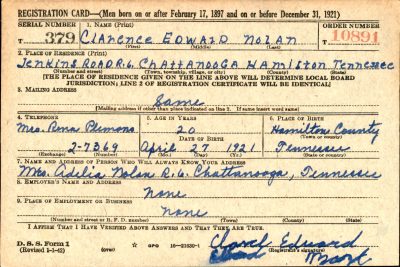 REGISTRATION CARD—(Men born on or after February 17, 1897 and on or before December 31, 1921)
SERIAL NUMBER 1. NAME (Print) ORDER NUMBER
T 379 Clarence Edward Nolan T 10891
(First) (Middle) (Last)
2. PLACE OF RESIDENCE (Print)
Jenkins Road R.6. Chattanooga Hamilton Tennessee
(Number and street) (Town, township, village, or city) (County) (State)
[THE PLACE OF RESIDENCE GIVEN ON THE LINE ABOVE WILL DETERMINE LOCAL BOARD
JURISDICTION; LINE 2 OF REGISTRATION CERTIFICATE WILL BE IDENTICAL]
3. MAILING ADDRESS
Same
[Mailing address if other than place indicated on line 2. If same insert word same]
4. TELEPHONE 5. AGE IN YEARS 6. PLACE OF BIRTH
Mrs. Plemons 20 Hamilton County
DATE OF BIRTH (Town or county)
2-7369 April 27 1921 Tennessee
(Exchange) (Number) (Mo.) (Day) (Yr.) (State or country)
7. NAME AND ADDRESS OF PERSON WHO WILL ALWAYS KNOW YOUR ADDRESS
Mrs. Adelia Nolan R.6. Chattanooga, Tennessee
8. EMPLOYER'S NAME AND ADDRESS
None
9. PLACE OF EMPLOYMENT OR BUSINESS
None
(Number and street or R. F. D. number) (Town) (County) (State)
I AFFIRM THAT I HAVE VERIFIED ABOVE ANSWERS AND THAT THEY ARE TRUE.
D. S. S. Form 1
(Revised 1-1-42) (over) GPO 16—21630-1
Edward